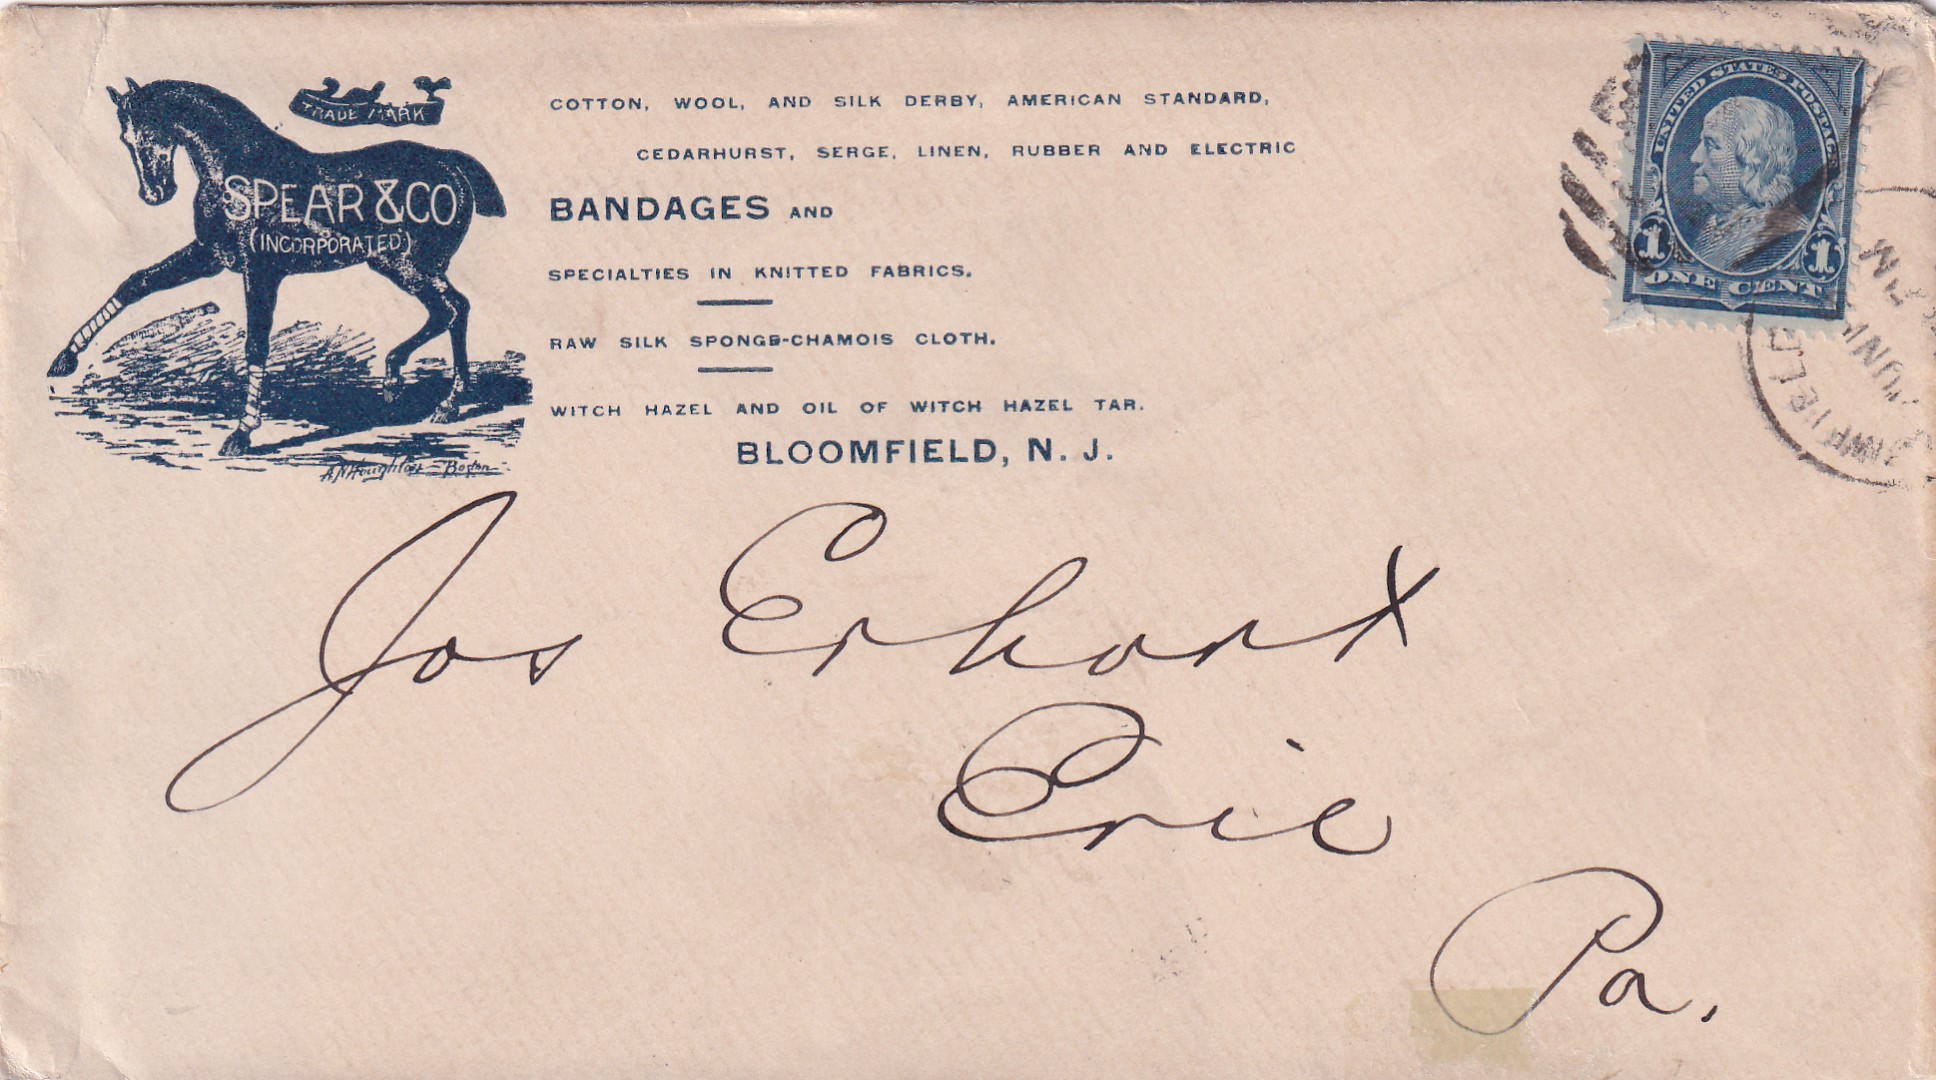 TRADE MARK
SPEAR & CO
(INCORPORATED)
A.N. Houghton - Boston
COTTON, WOOL, AND SILK DERBY, AMERICAN STANDARD,
CEDARHURST, SERGE, LINEN, RUBBER AND ELECTRIC
BANDAGES AND
SPECIALTIES IN KNITTED FABRICS.
RAW SILK SPONGE-CHAMOIS CLOTH.
WITCH HAZEL AND OIL OF WITCH HAZEL TAR.
BLOOMFIELD, N. J.
UNITED STATES POSTAGE
1 1
ONE CENT
PM
JUN
Jos Erhart
Erie
Pa.